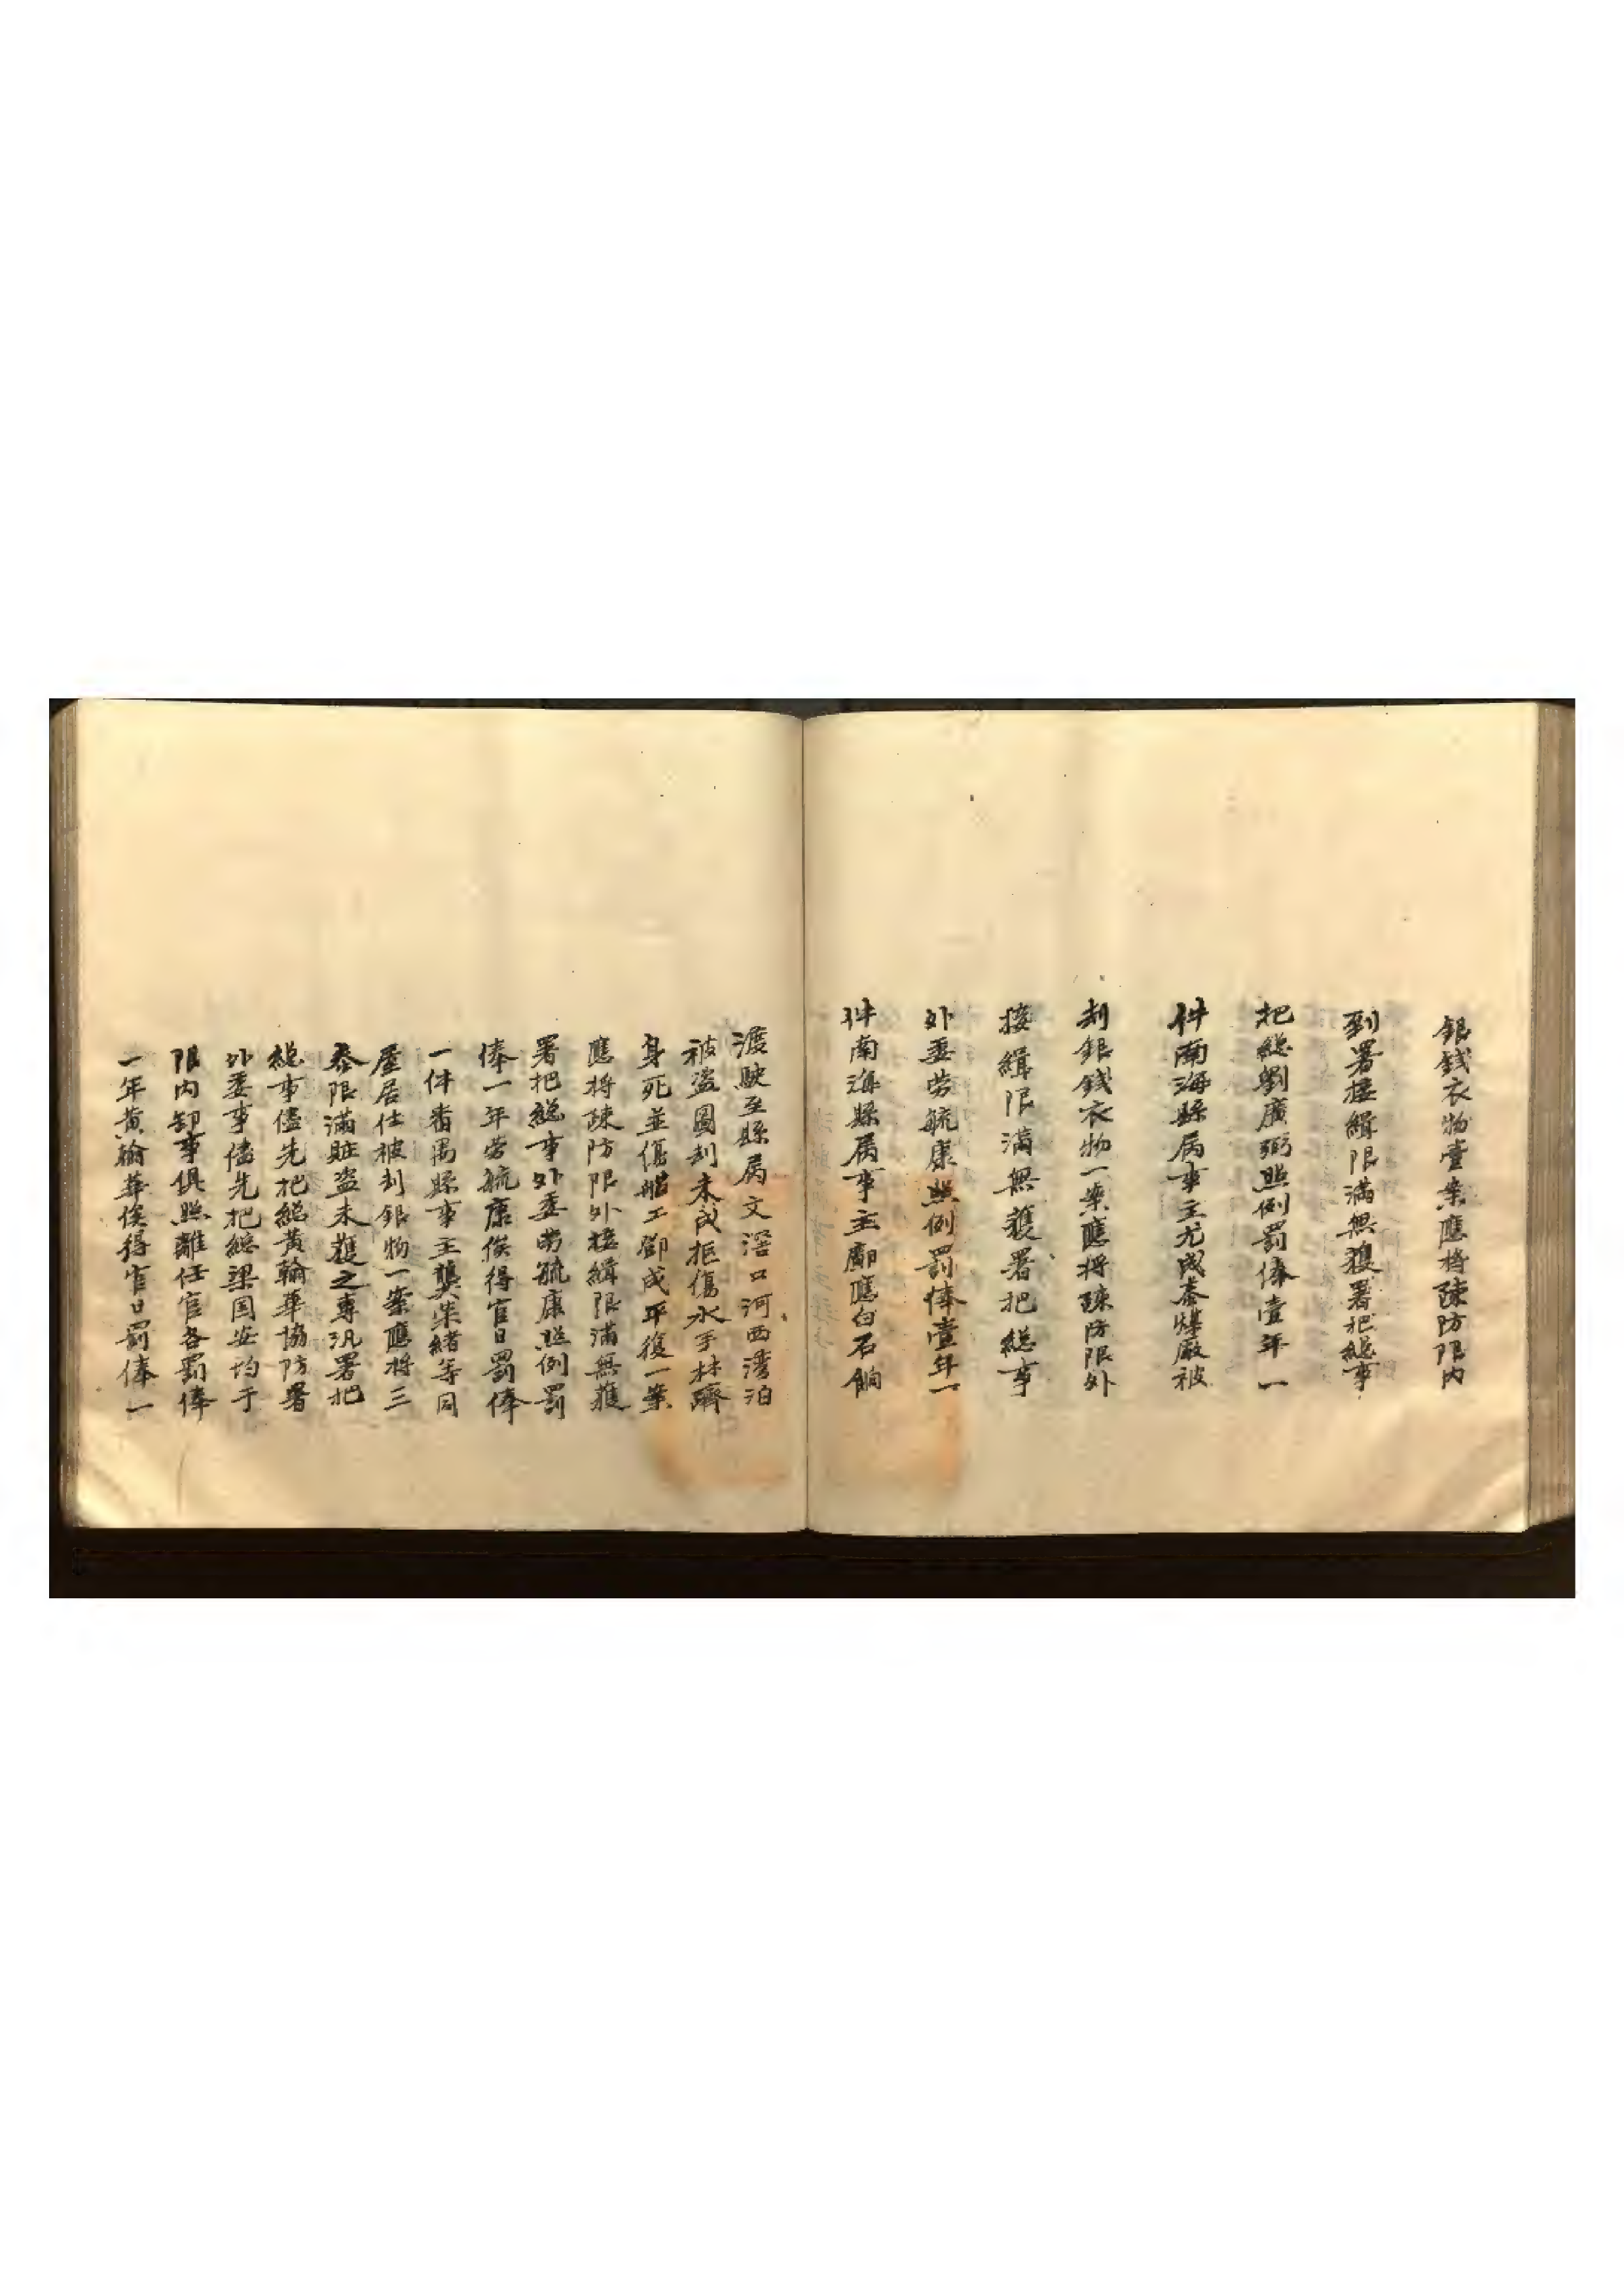 銀錢衣物壹案應將疎防限內
到署接緝限滿無獲署把總事
把總劉廣弼照例罰俸壹年一
件南海縣屬事主尤成泰爆廠被
刦銀錢衣物一案應將疎防限外
接緝限滿無獲署把總事
外委勞毓康照例罰俸壹年一
件南海縣屬事主鄺應白石餉
渡駛至縣屬文滘口河西灣泊
被盜圖刦未成拒傷水手林躋
身死並傷船工鄧成平復一案
應將疎防限外接緝限滿無獲
署把總事外委勞毓康照例罰
俸一年勞毓康俟得官日罰俸
一件番禺縣事主龔柴緒等同
屋居住被刦銀物一案應將三
叅限滿賍盜未獲之專汛署把
總事儘先把總黃翰華協防署
外委事儘先把總梁国安均于
限內卸事俱照離任官各罰俸
一年黃翰華俟得官日罰俸一